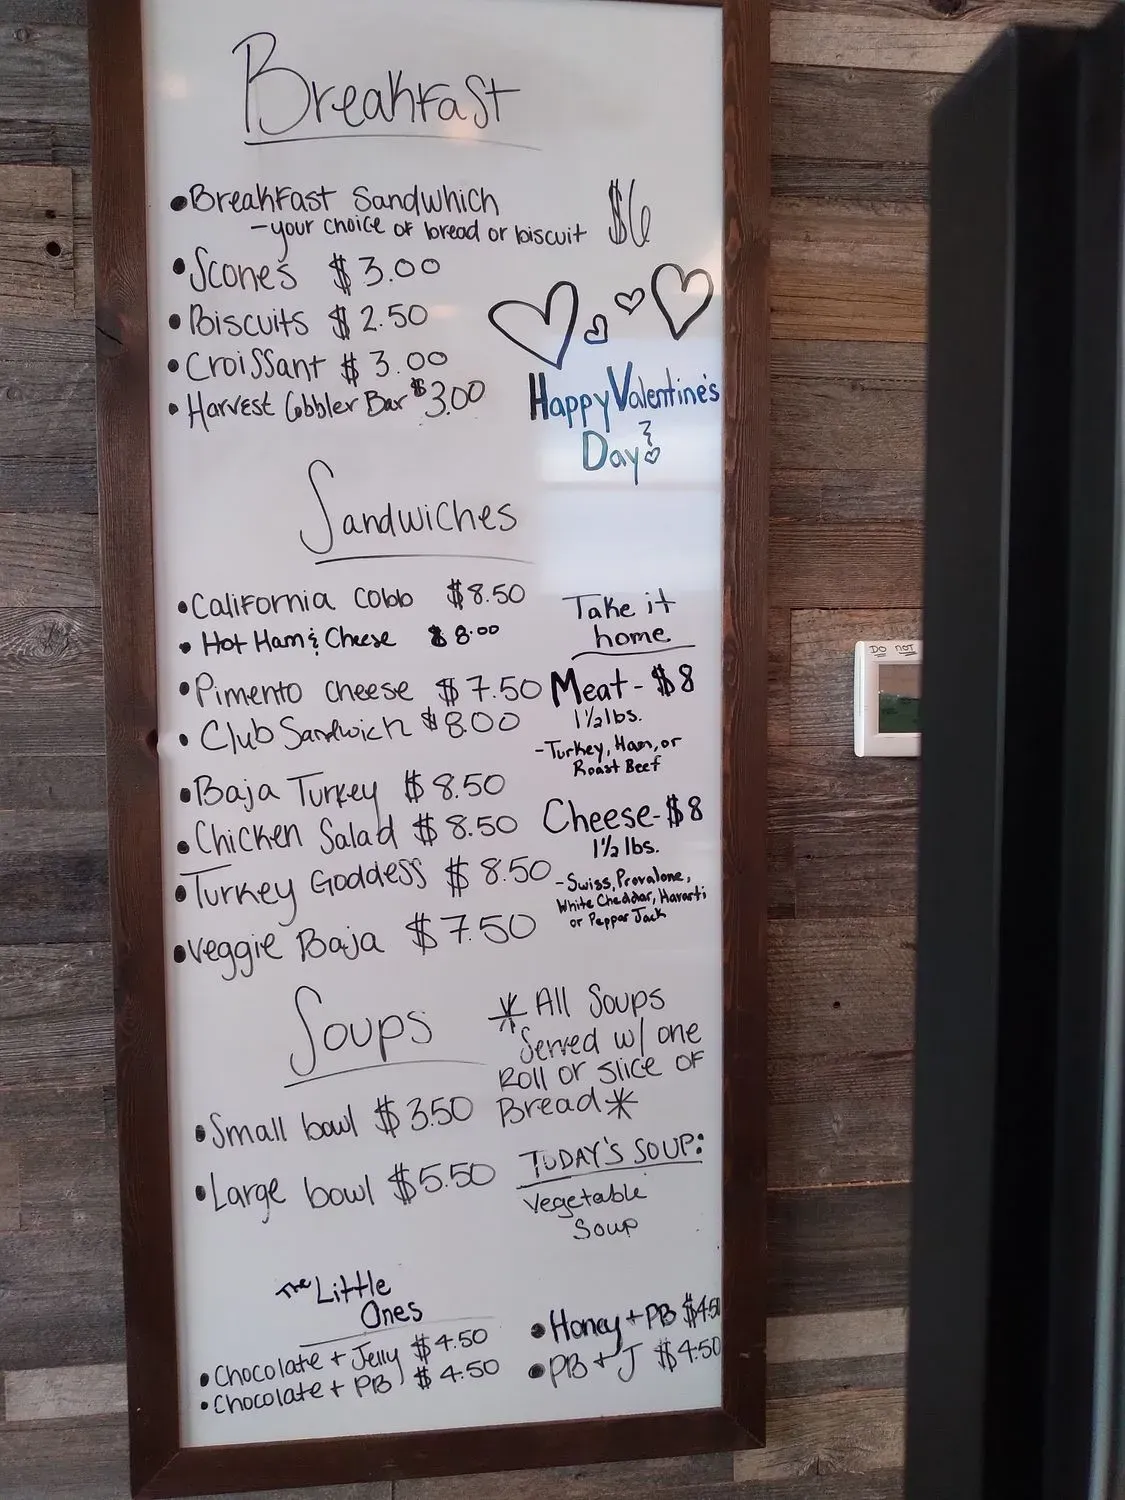 Breakfast
•Breakfast Sandwhich $6
-your choice of bread or biscuit
•Scones $3.00
•Biscuits $2.50
•Croissant $3.00
•Harvest Cobbler Bar $3.00
Happy Valentine's
Day
Sandwiches
•California Cobb $8.50
•Hot Ham & Cheese $8.00
•Pimento cheese $7.50
•Club Sandwich $8.00
•Baja Turkey $8.50
•Chicken Salad $8.50
•Turkey Goddess $8.50
•Veggie Baja $7.50
Take it
home
Meat-$8
1½ lbs.
-Turkey, Ham, or
Roast Beef
Cheese-$8
1½ lbs.
-Swiss, Provalone,
White Cheddar, Havarti
or Pepper Jack
DO NOT
Soups
*All Soups
Served w/ one
Roll or slice of
Bread*
•Small bowl $3.50
•Large bowl $5.50
TODAY'S SOUP:
Vegetable
Soup
The Little
Ones
•Chocolate + Jelly $4.50
•Chocolate + PB $4.50
•Honey + PB $4.50
•PB + J $4.50